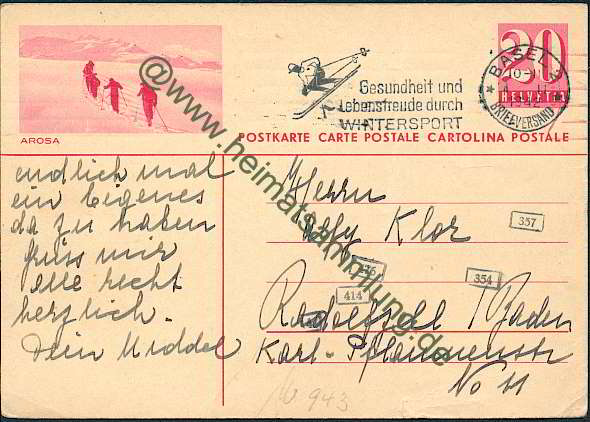 AROSA
Gesundheit und
Lebensfreude durch
WINTERSPORT
BASEL 2
10-
BRIEFVERSAND
20
HELVETIA
POSTKARTE CARTE POSTALE CARTOLINA POSTALE
endlich mal
ein eigenes
da zu haben
Grüss mir
alle recht
herzlich.
Dein Middel
Herrn
Klor
357
354
414
Radolfzell Baden
Karl-
No 11
943
@www.heimatsammlung.de